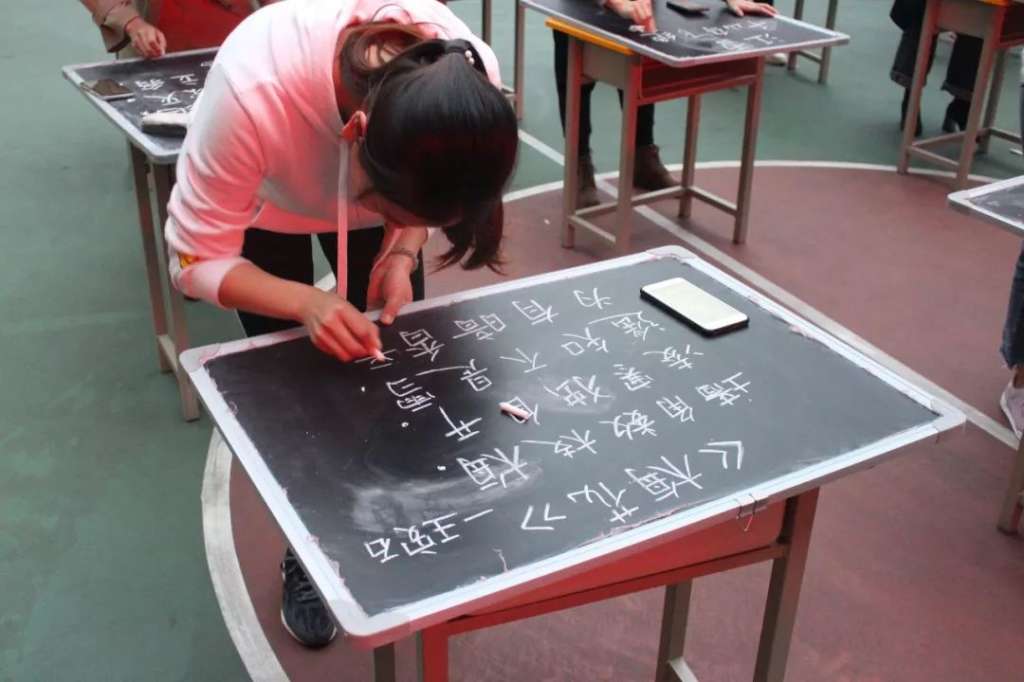 《梅花》—王安石
墙角数枝梅
凌寒独自开
遥知不是雪
为有暗香